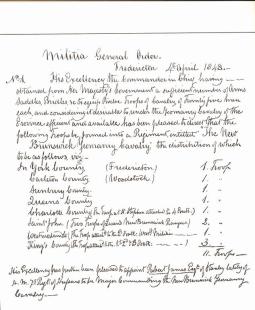 Militia General Order.
Fredericton 4th April 1848.
No 1. His Excellency the Commander in Chief having
obtained from Her Majesty's Government a sufficient number of Arms
Saddles, Bridles &c to equip Twelve Troops of Cavalry of Twenty five men
each, and considering it desirable to render the Yeomanry Cavalry of the
Province efficient and available, has been pleased to direct that the
following Troops be formed into a Regiment entitled "The New
Brunswick Yeomanry Cavalry" the distribution of which
to be as follows, viz
In York County (Fredericton) 1. Troop
Carleton County (Woodstock) 1.
Sunbury County 1.
Queens County 1.
Charlotte County the Troop at St Stephen attached to 1.
Saint John (Two Troops of 2.
Westmorland the Troop 1.
King's County the Troops attached to 3.
11. Troops
His Excellency has further been pleased to appoint Robert James Esqr of Stanley
to be Major Commanding the New Brunswick Yeomanry
Cavalry